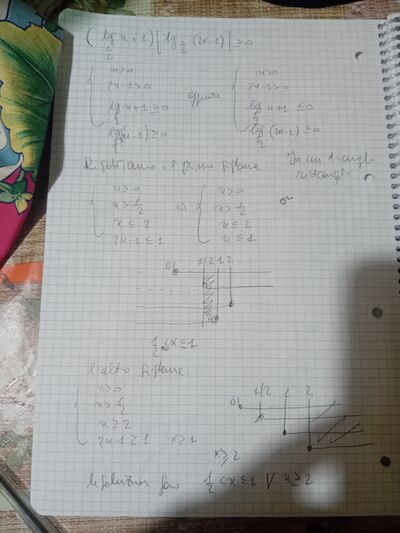 (lg_{1/2} x + 1) [lg_{1/2} (2x-1)] ≥ 0
x>0
2x-1>0
lg_{1/2} x+1 ≥ 0
lg_{1/2} (2x-1) ≥ 0
oppure
x>0
2x-1>0
lg_{1/2} x+1 ≤ 0
lg_{1/2} (2x-1) ≤ 0
Risolviamo il primo sistema
In un triangolo
rettangolo
x>0
x>1/2
x≤2
2x-1≤1
⇒
x>0
x>1/2
x≤2
x≤1
0 1/2 1 2
1/2 <x≤1
L'altro sistema
x>0
x>1/2
x≥2
2x-1≥1 x≥1
0 1/2 1 2
x≥2
le soluzioni sono 1/2 <x≤1 V x≥2